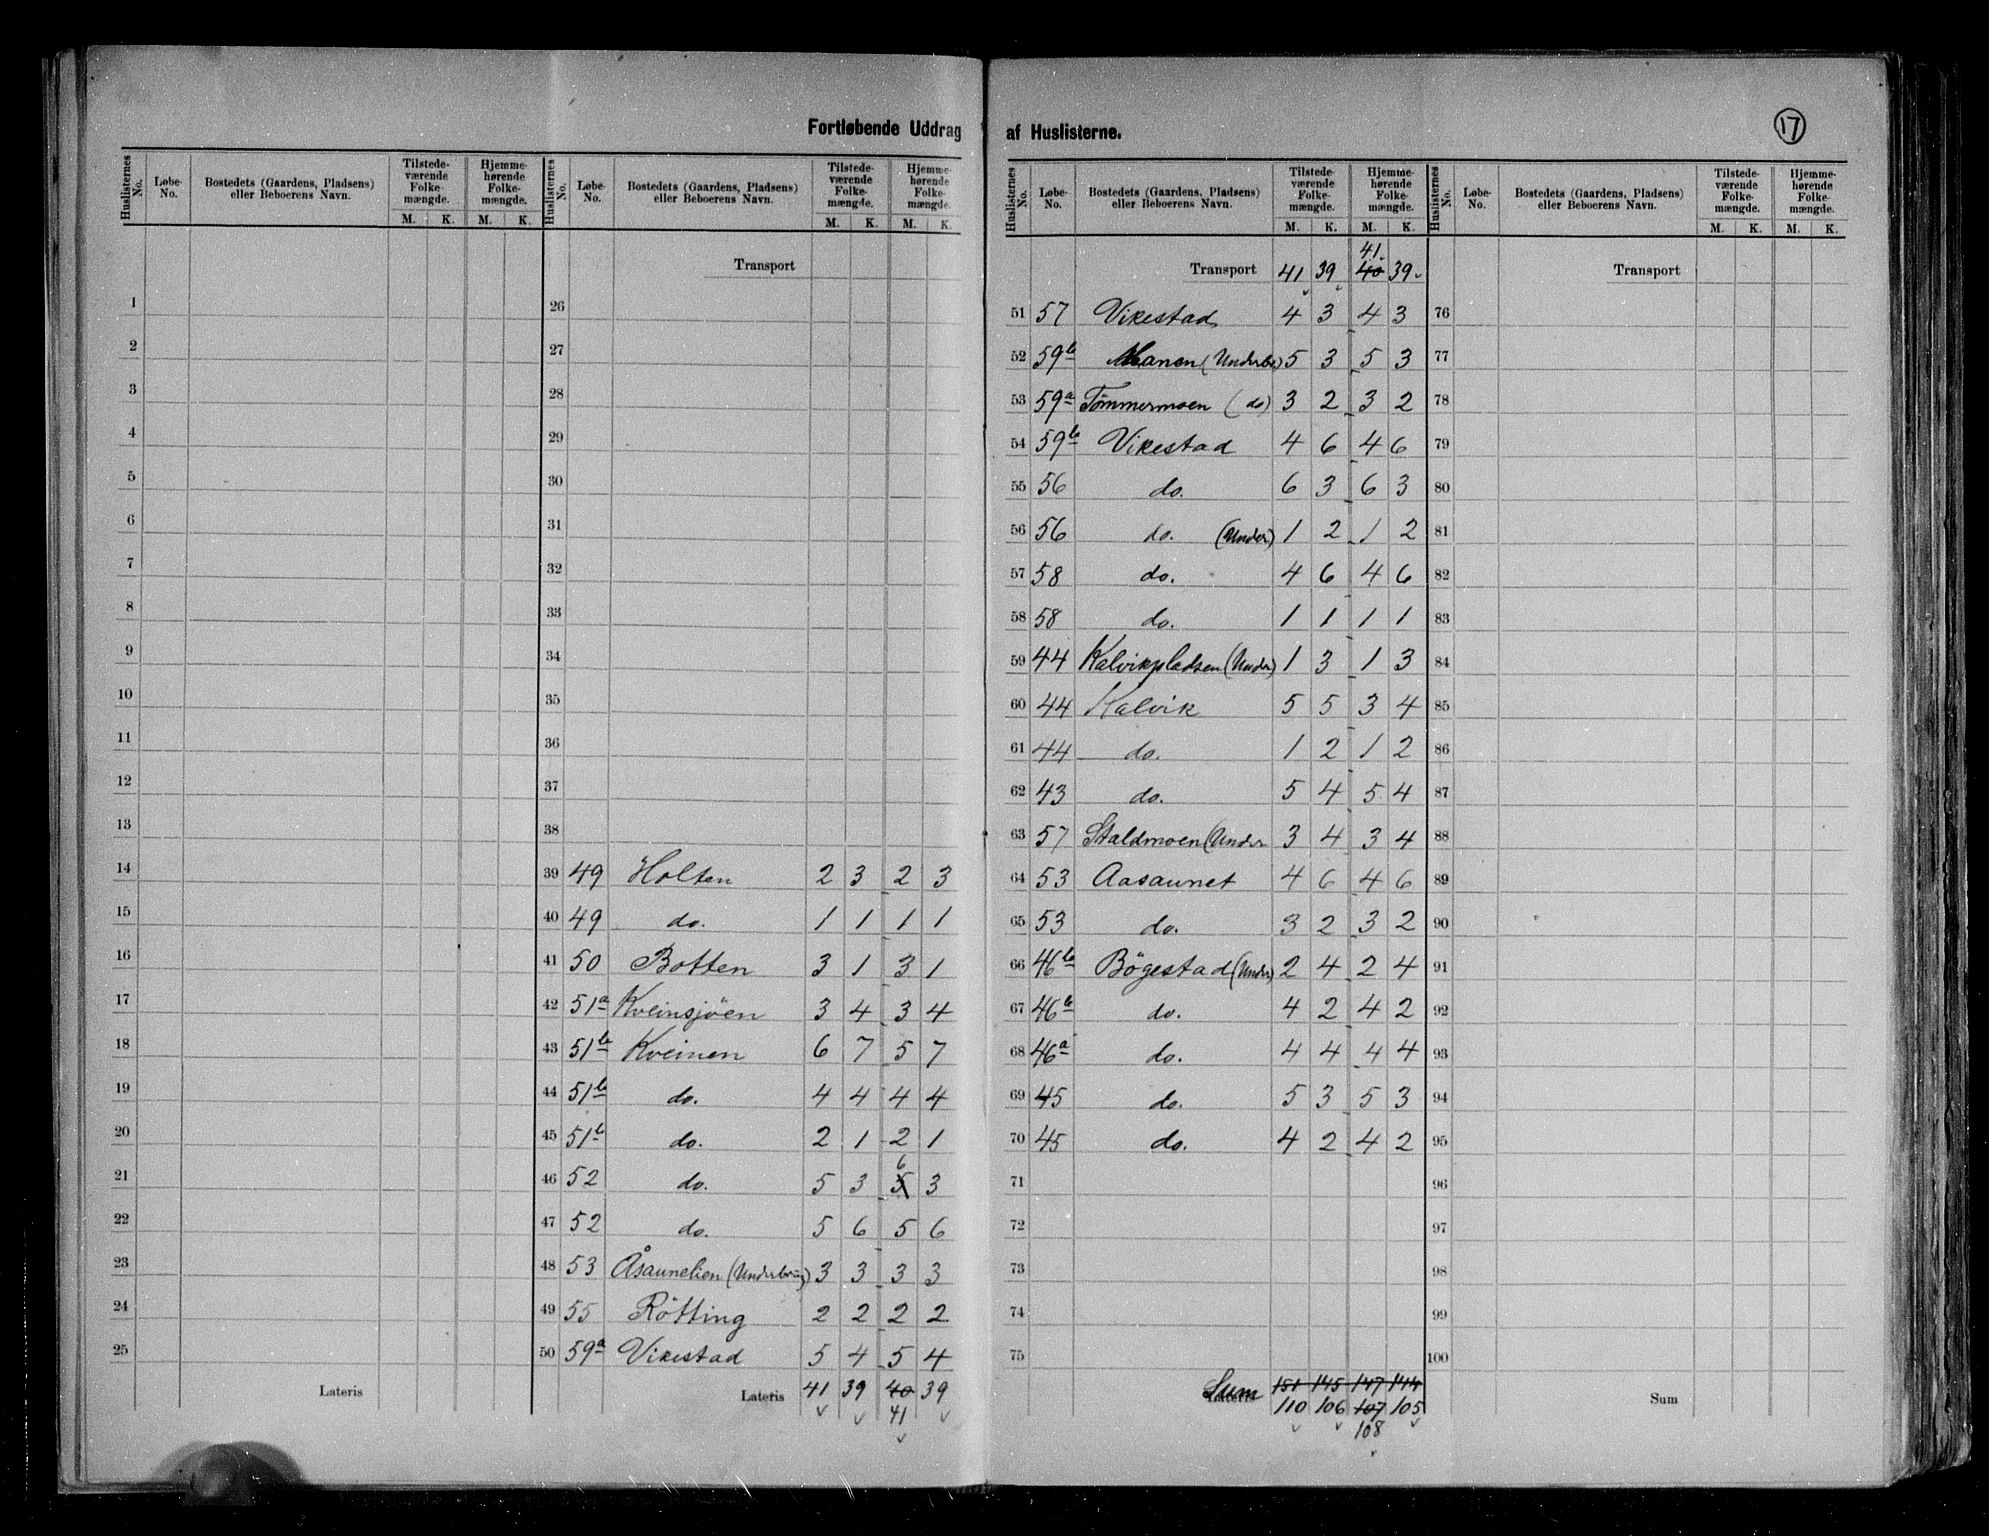 Fortløbende Uddrag af Huslisterne.
17
Huslisternes No. | Løbe-No. | Bostedets (Gaardens, Pladsens) eller Beboerens Navn. | Tilstedeværende Folkemængde. M. K. | Hjemmehørende Folkemængde. M. K.
1
2
3
4
5
6
7
8
9
10
11
12
13
14
15
16
17
18
19
20
21
22
23
24
25
Lateris
Huslisternes No. | Løbe-No. | Bostedets (Gaardens, Pladsens) eller Beboerens Navn. | Tilstedeværende Folkemængde. M. K. | Hjemmehørende Folkemængde. M. K.
Transport
26
27
28
29
30
31
32
33
34
35
36
37
38
39 49 Holten 2 3 2 3
40 49 do. 1 1 1 1
41 50 Botten 3 1 3 1
42 51a Kveinsjöen 3 4 3 4
43 51b Kveinen 6 7 5 7
44 51b do. 4 4 4 4
45 51b do. 2 1 2 1
46 52 do. 5 3 5 6 3
47 52 do. 5 6 5 6
48 53 Åsaunelien (Underbrug) 3 3 3 3
49 55 Rötting 2 2 2 2
50 59a Vikestad 5 4 5 4
Lateris 41 39 40 39
41
Huslisternes No. | Løbe-No. | Bostedets (Gaardens, Pladsens) eller Beboerens Navn. | Tilstedeværende Folkemængde. M. K. | Hjemmehørende Folkemængde. M. K.
41
Transport 41 39 40 39
51 57 Vikestad 4 3 4 3
52 59b Manen (Underbr) 5 3 5 3
53 59a Tömmermoen (do) 3 2 3 2
54 59b Vikestad 4 6 4 6
55 56 do. 6 3 6 3
56 56 do. (Under) 1 2 1 2
57 58 do. 4 6 4 6
58 58 do. 1 1 1 1
59 44 Kalvikpladsen (Under) 1 3 1 3
60 44 Kalvik 5 5 3 4
61 44 do. 1 2 1 2
62 43 do. 5 4 5 4
63 57 Staldmoen (Under 3 4 3 4
64 53 Aasaunet 4 6 4 6
65 53 do. 3 2 3 2
66 46b Bögestad (Under) 2 4 2 4
67 46b do. 4 2 4 2
68 46a do. 4 4 4 4
69 45 do. 5 3 5 3
70 45 do. 4 2 4 2
71
72
73
74
75
Lateris Sum 151 145 147 144
110 106 107 105
108
Huslisternes No. | Løbe-No. | Bostedets (Gaardens, Pladsens) eller Beboerens Navn. | Tilstedeværende Folkemængde. M. K. | Hjemmehørende Folkemængde. M. K.
Transport
76
77
78
79
80
81
82
83
84
85
86
87
88
89
90
91
92
93
94
95
96
97
98
99
100
Sum